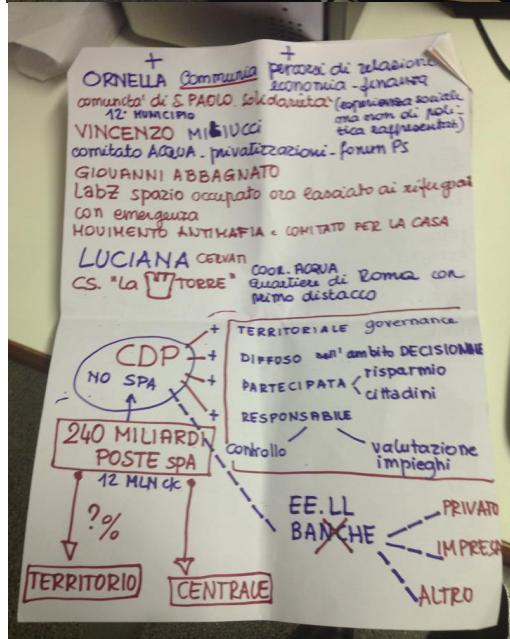 + +
ORNELLA Communia percorsi di relazione
economia - finanza
comunita' di S. PAOLO. solidarieta' (esperienza sociale
12° MUNICIPIO ma non di poli-
tica rappresentat.)
VINCENZO MILIUCCI
comitato ACQUA - privatizzazioni - forum PS
GIOVANNI ABBAGNATO
LabZ spazio occupato ora lasciato ai rifugiati
con emergenza
MOVIMENTO ANTIMAFIA e COMITATO PER LA CASA
LUCIANA CERVATI COOR. ACQUA
CS. "La TORRE" quartiere di Roma con
primo distacco
CDP
NO SPA
+ TERRITORIALE governance
+ DIFFOSO nell'ambito DECISIONALE
+ PARTECIPATA risparmio
cittadini
+ RESPONSABILE
controllo valutazione
impieghi
240 MILIARDI
POSTE SPA
12 MLN c/c
?%
TERRITORIO
CENTRALE
EE.LL
BANCHE
PRIVATO
IMPRESA
ALTRO